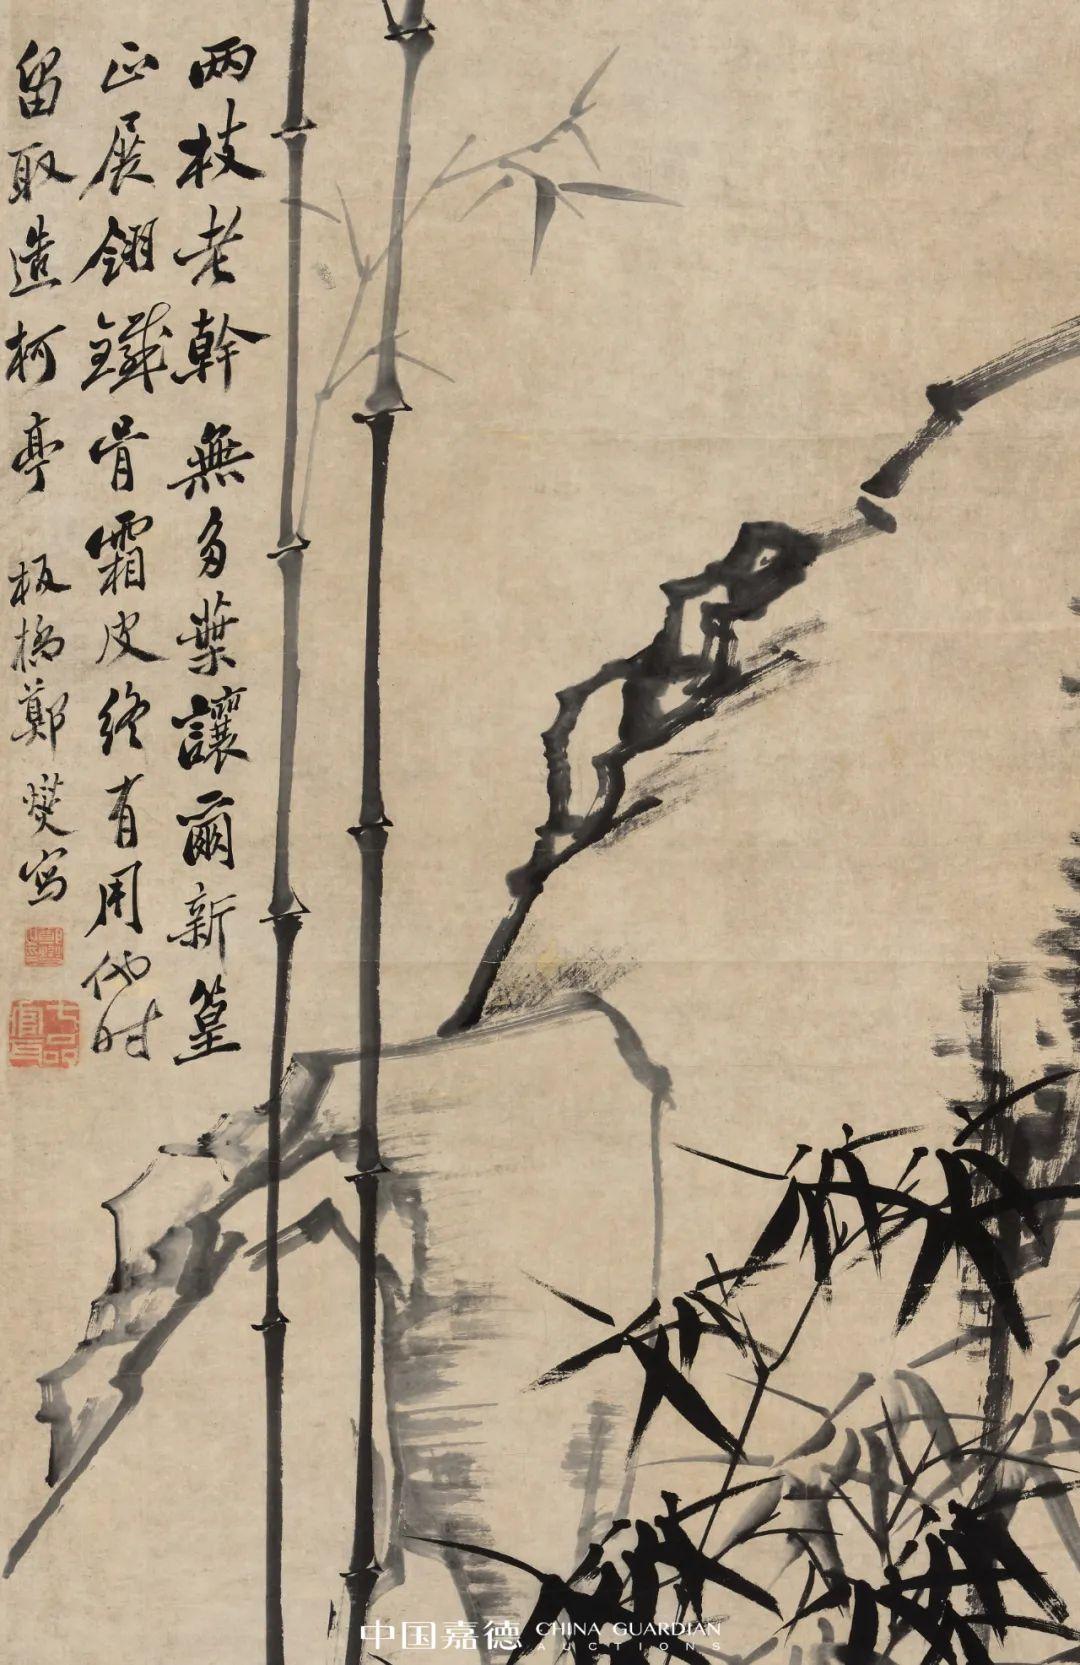 两枝老幹無多葉讓爾新篁
正展翎鐵骨霜皮終有用他时
留取造柯亭 板橋鄭燮寫
鄭燮
七品官耳
中国嘉德 CHINA GUARDIAN
AUCTIONS